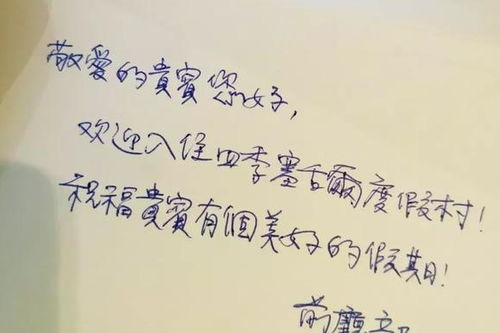 敬愛的貴賓您好,
欢迎入住四季塞舌爾度假村!
祝福貴賓有個美好的假期!
前廳部